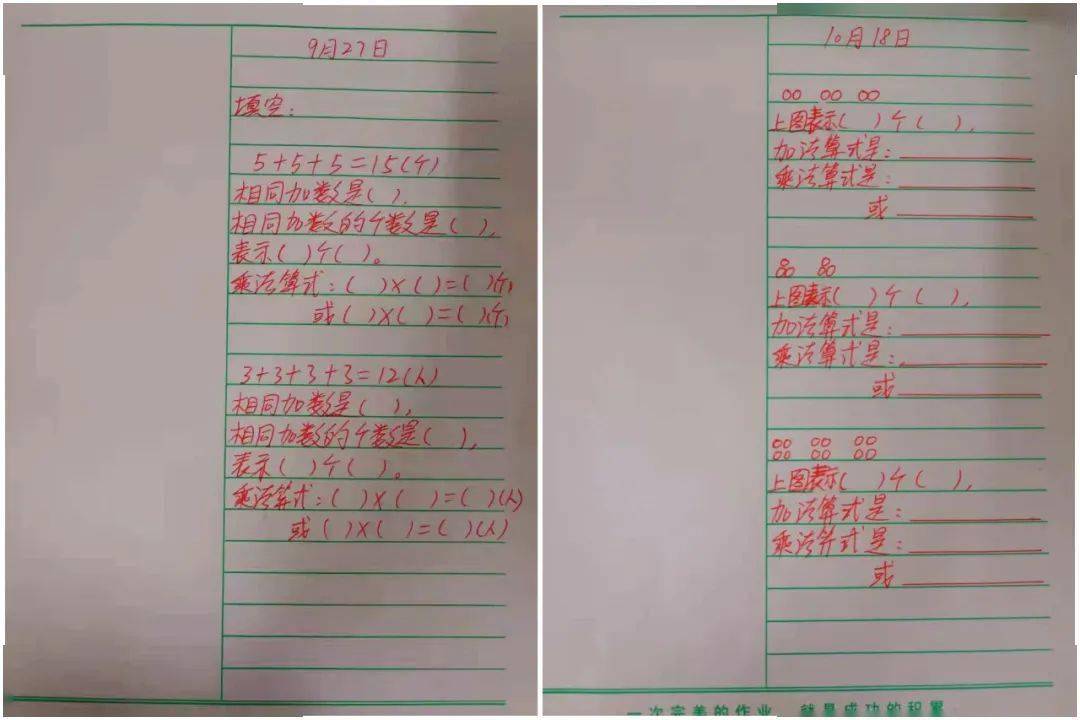 9月27日
填空：
5+5+5=15(个)
相同加数是(  ),
相同加数的个数是(  ),
表示(  )个(  )。
乘法算式：(  )×(  )=(  )(个)
或(  )×(  )=(  )(个)
3+3+3+3=12(人)
相同加数是(  ),
相同加数的个数是(  ),
表示(  )个(  )。
乘法算式：(  )×(  )=(  )(人)
或(  )×(  )=(  )(人)
10月18日
上图表示(  )个(  ),
加法算式是：
乘法算式是：
或
上图表示(  )个(  ),
加法算式是：
乘法算式是：
或
上图表示(  )个(  ),
加法算式是：
乘法算式是：
或
一次完美的作业 就是成功的积累